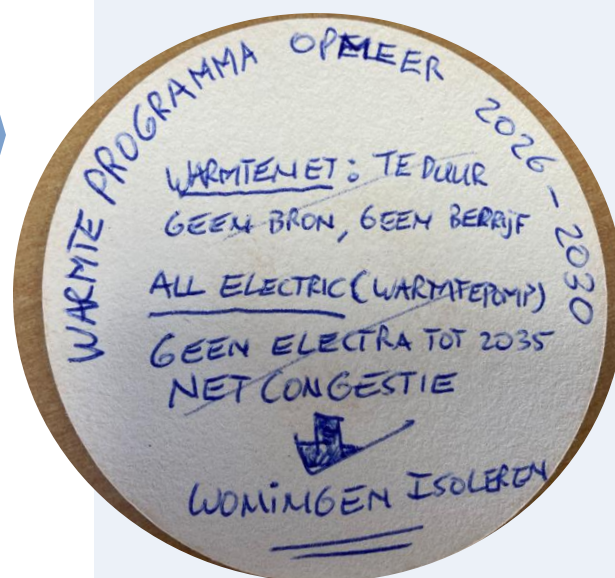 WARMTE PROGRAMMA OPMEER 2026-2030
WARMTENET: TE DUUR
GEEN BRON, GEEN BEDRIJF
ALL ELECTRIC (WARMTEPOMP)
GEEN ELECTRA TOT 2035
NETCONGESTIE
WONINGEN ISOLEREN